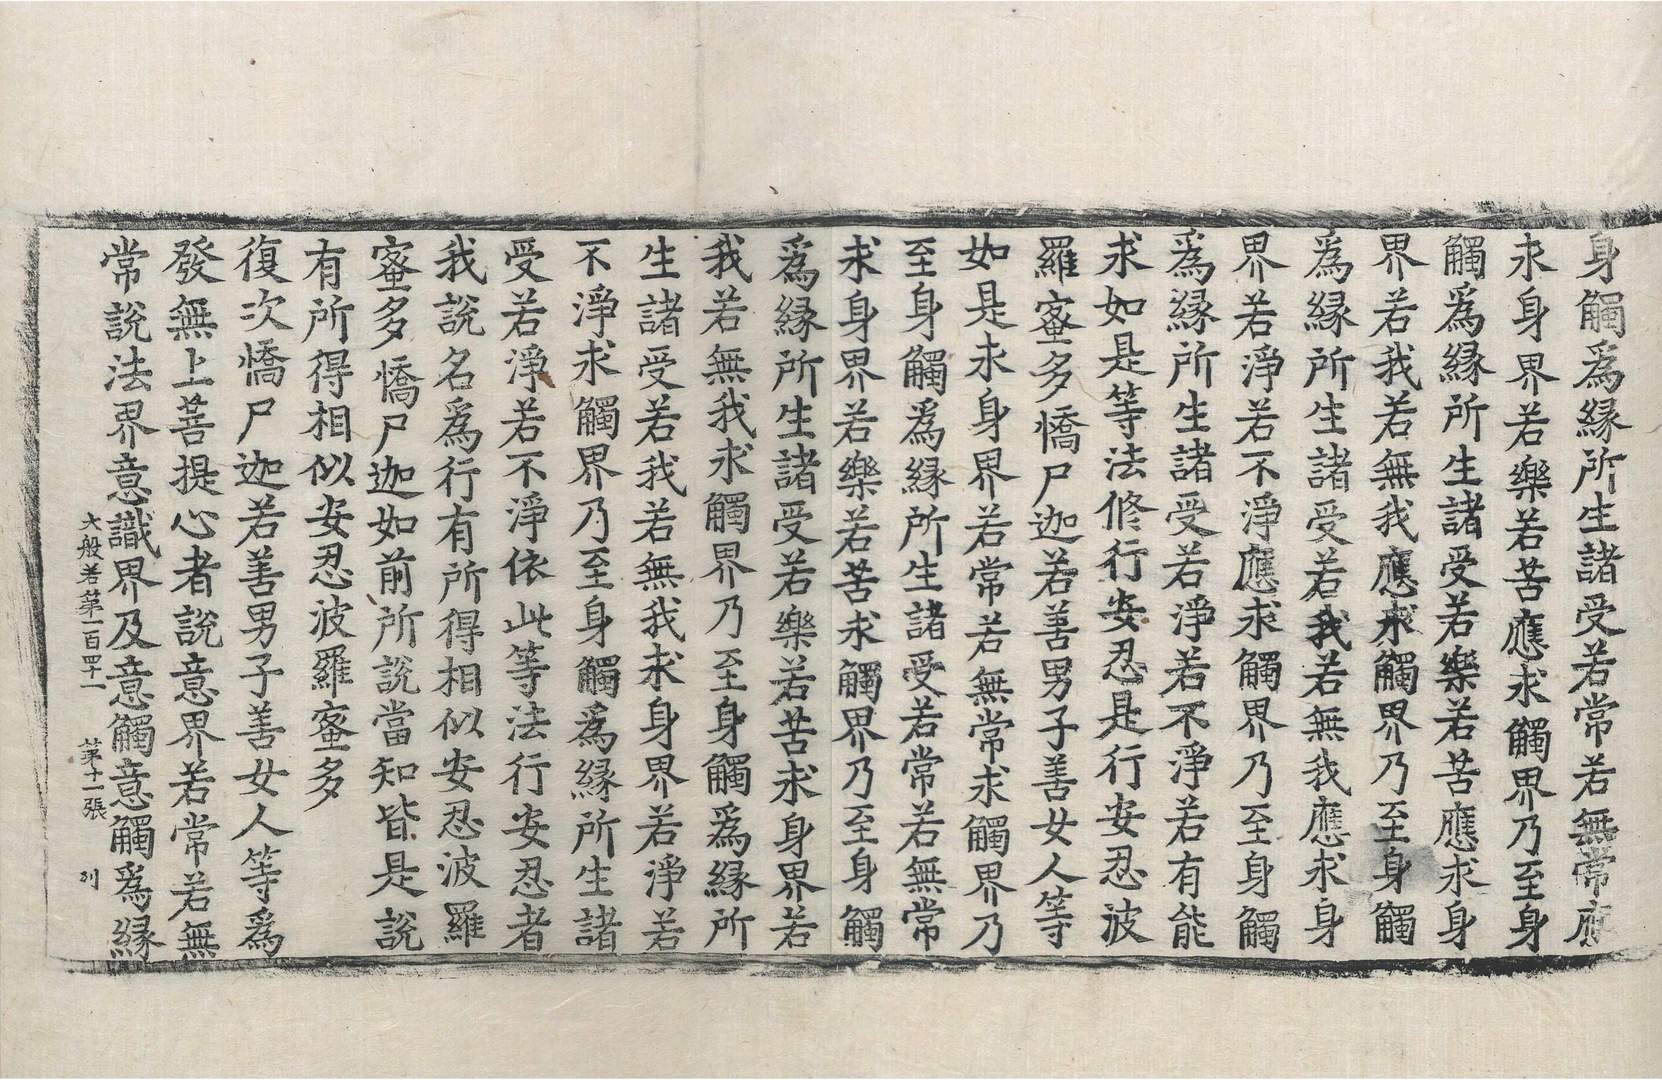 身觸爲緣所生諸受若常若無常應
求身界若樂若苦應求觸界乃至身
觸爲緣所生諸受若樂若苦應求身
界若我若無我應求觸界乃至身觸
爲緣所生諸受若我若無我應求身
界若淨若不淨應求觸界乃至身觸
爲緣所生諸受若淨若不淨若有能
求如是等法修行安忍是行安忍波
羅蜜多憍尸迦若善男子善女人等
如是求身界若常若無常求觸界乃
至身觸爲緣所生諸受若常若無常
求身界若樂若苦求觸界乃至身觸
爲緣所生諸受若樂若苦求身界若
我若無我求觸界乃至身觸爲緣所
生諸受若我若無我求身界若淨若
不淨求觸界乃至身觸爲緣所生諸
受若淨若不淨依此等法行安忍者
我說名爲行有所得相似安忍波羅
蜜多憍尸迦如前所說當知皆是說
有所得相似安忍波羅蜜多
復次憍尸迦若善男子善女人等爲
發無上菩提心者說意界若常若無
常說法界意識界及意觸意觸爲緣
大般若第一百四十一 第十一張 列